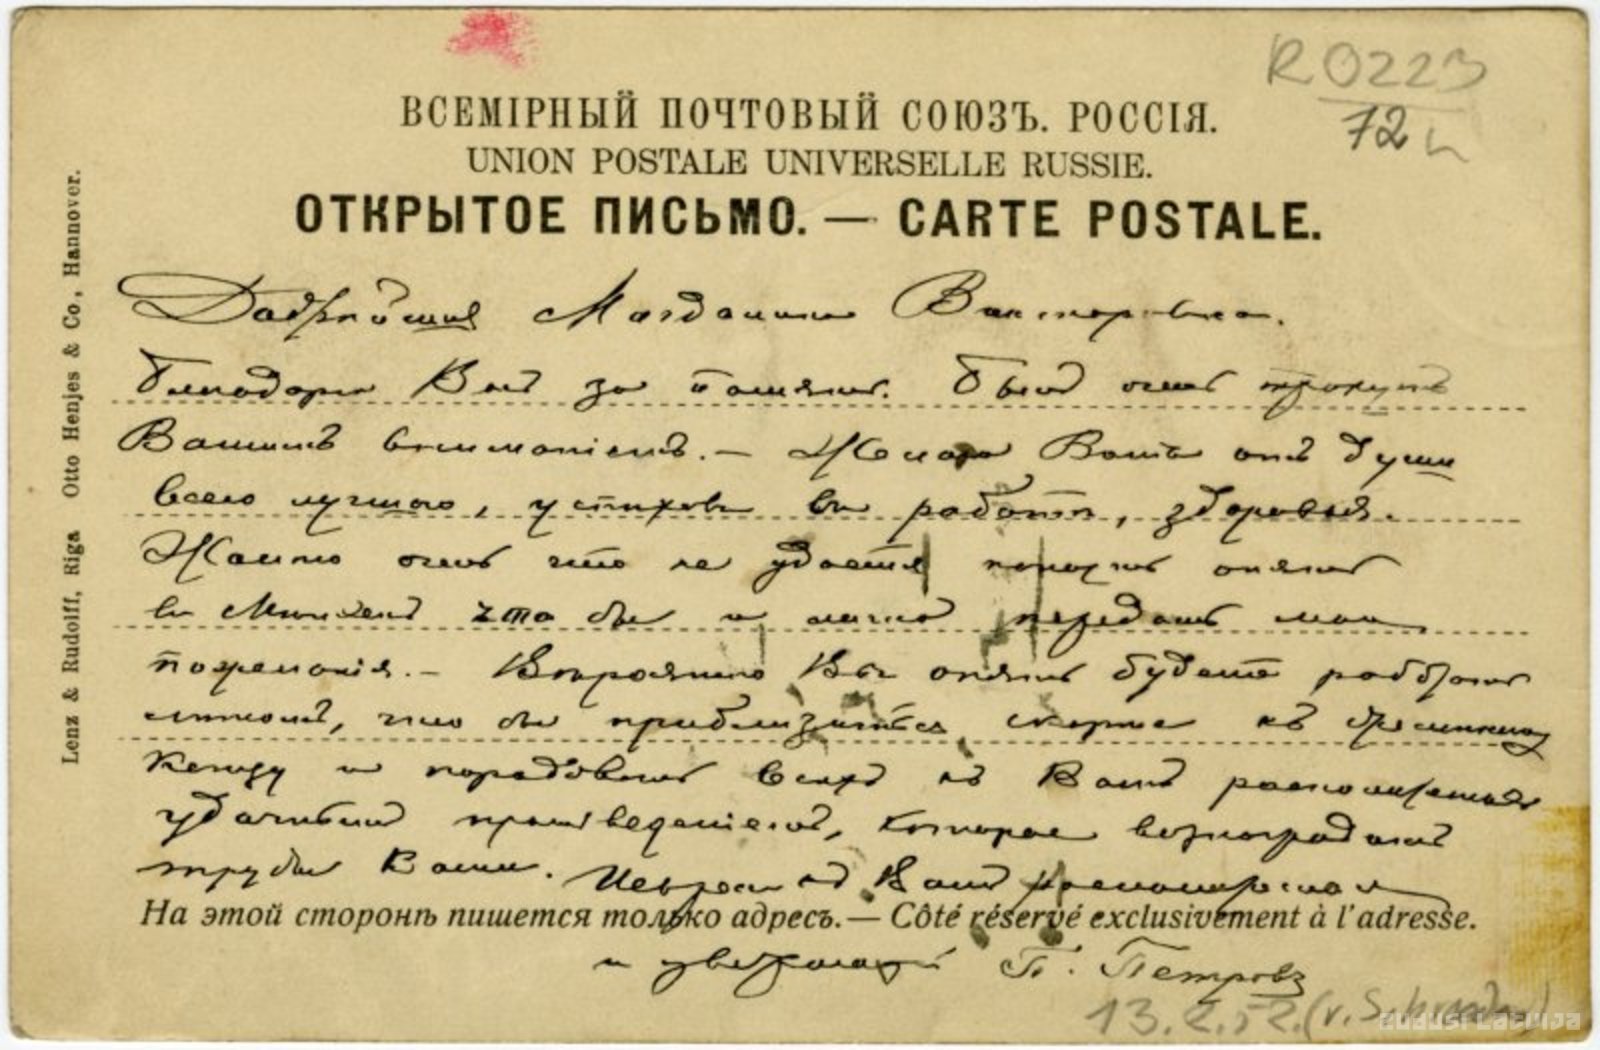 R 0223
72
ВСЕМІРНЫЙ ПОЧТОВЫЙ СОЮЗЪ. РОССІЯ.
UNION POSTALE UNIVERSELLE RUSSIE.
ОТКРЫТОЕ ПИСЬМО. — CARTE POSTALE.
Lenz & Rudolff, Riga Otto Henjes & Co., Hannover.
Магдалина Викторовна.
Благодарю Васъ за память. Былъ очень тронутъ
Вашимъ вниманіемъ. — Желаю Вамъ отъ души
всего лучшаго, успѣховъ въ работѣ, здоровья.
Жалко очень что не удастся попасть опять
въ Мюнхенъ что бы и лично передать мои
пожеланія. — Вѣроятно Вы опять будете работать
что бы приблизиться скорѣе къ
концу и порадовать всѣхъ къ Вамъ расположенныхъ
удачнымъ произведеніемъ, которое вознаградитъ
труды Ваши. Искренно Вамъ
На этой сторонѣ пишется только адресъ. — Côté réservé exclusivement à l'adresse.
и уважающій П. Петровъ
13.2.52. (v. S
ZUDUSI LATVIJA